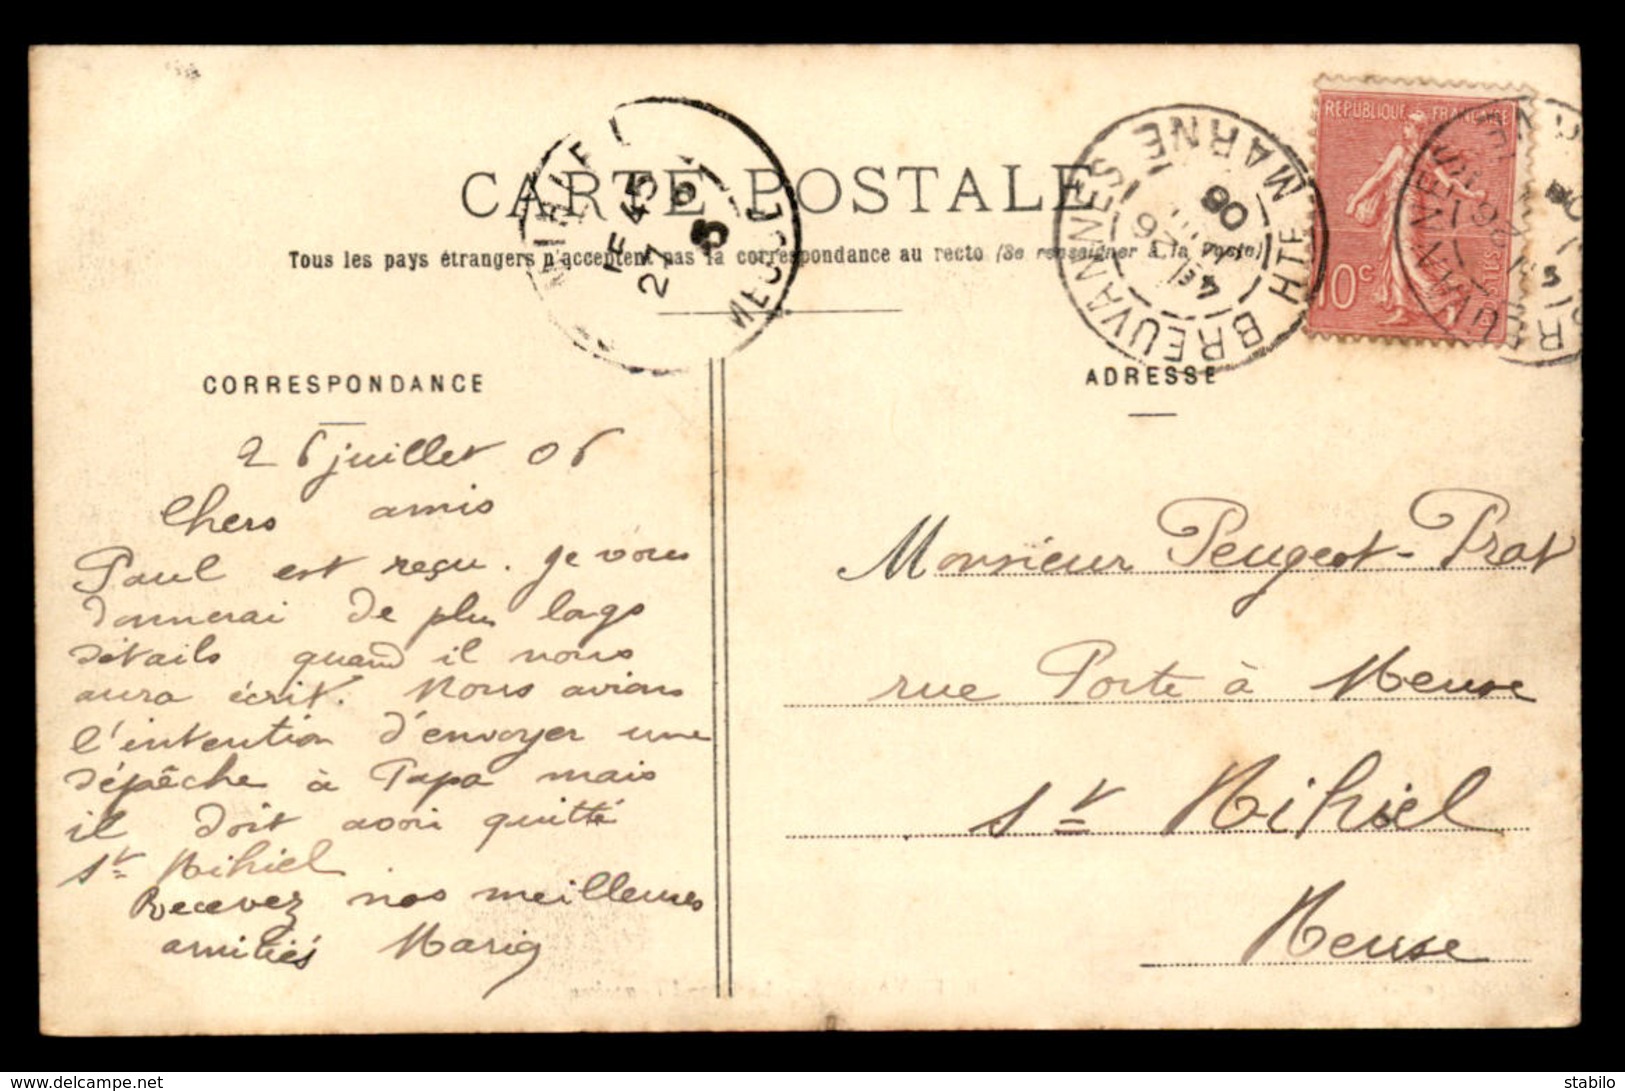 CARTE POSTALE
Tous les pays étrangers n'acceptent pas la correspondance au recto (Se renseigner à la poste)
REPUBLIQUE FRANÇAISE
10c
POSTES
BREUVANNES HTE MARNE
4E 26 06
BREUVANNES
MIHIEL
1E 45
27
MEUSE
CORRESPONDANCE
26 juillet 06
Chers amis
Paul est reçu. Je vous
donnerai de plus lags
détails quand il nous
aura écrit. Nous avions
l'intention d'envoyer une
dépêche à Papa mais
il doit avoir quitté
St Mihiel
Recevez nos meilleures
amitiés
ADRESSE
Monsieur Peugeot-Prat
rue Porte à Meuse
St Mihiel
Meuse
www.delcampe.net
stabilo